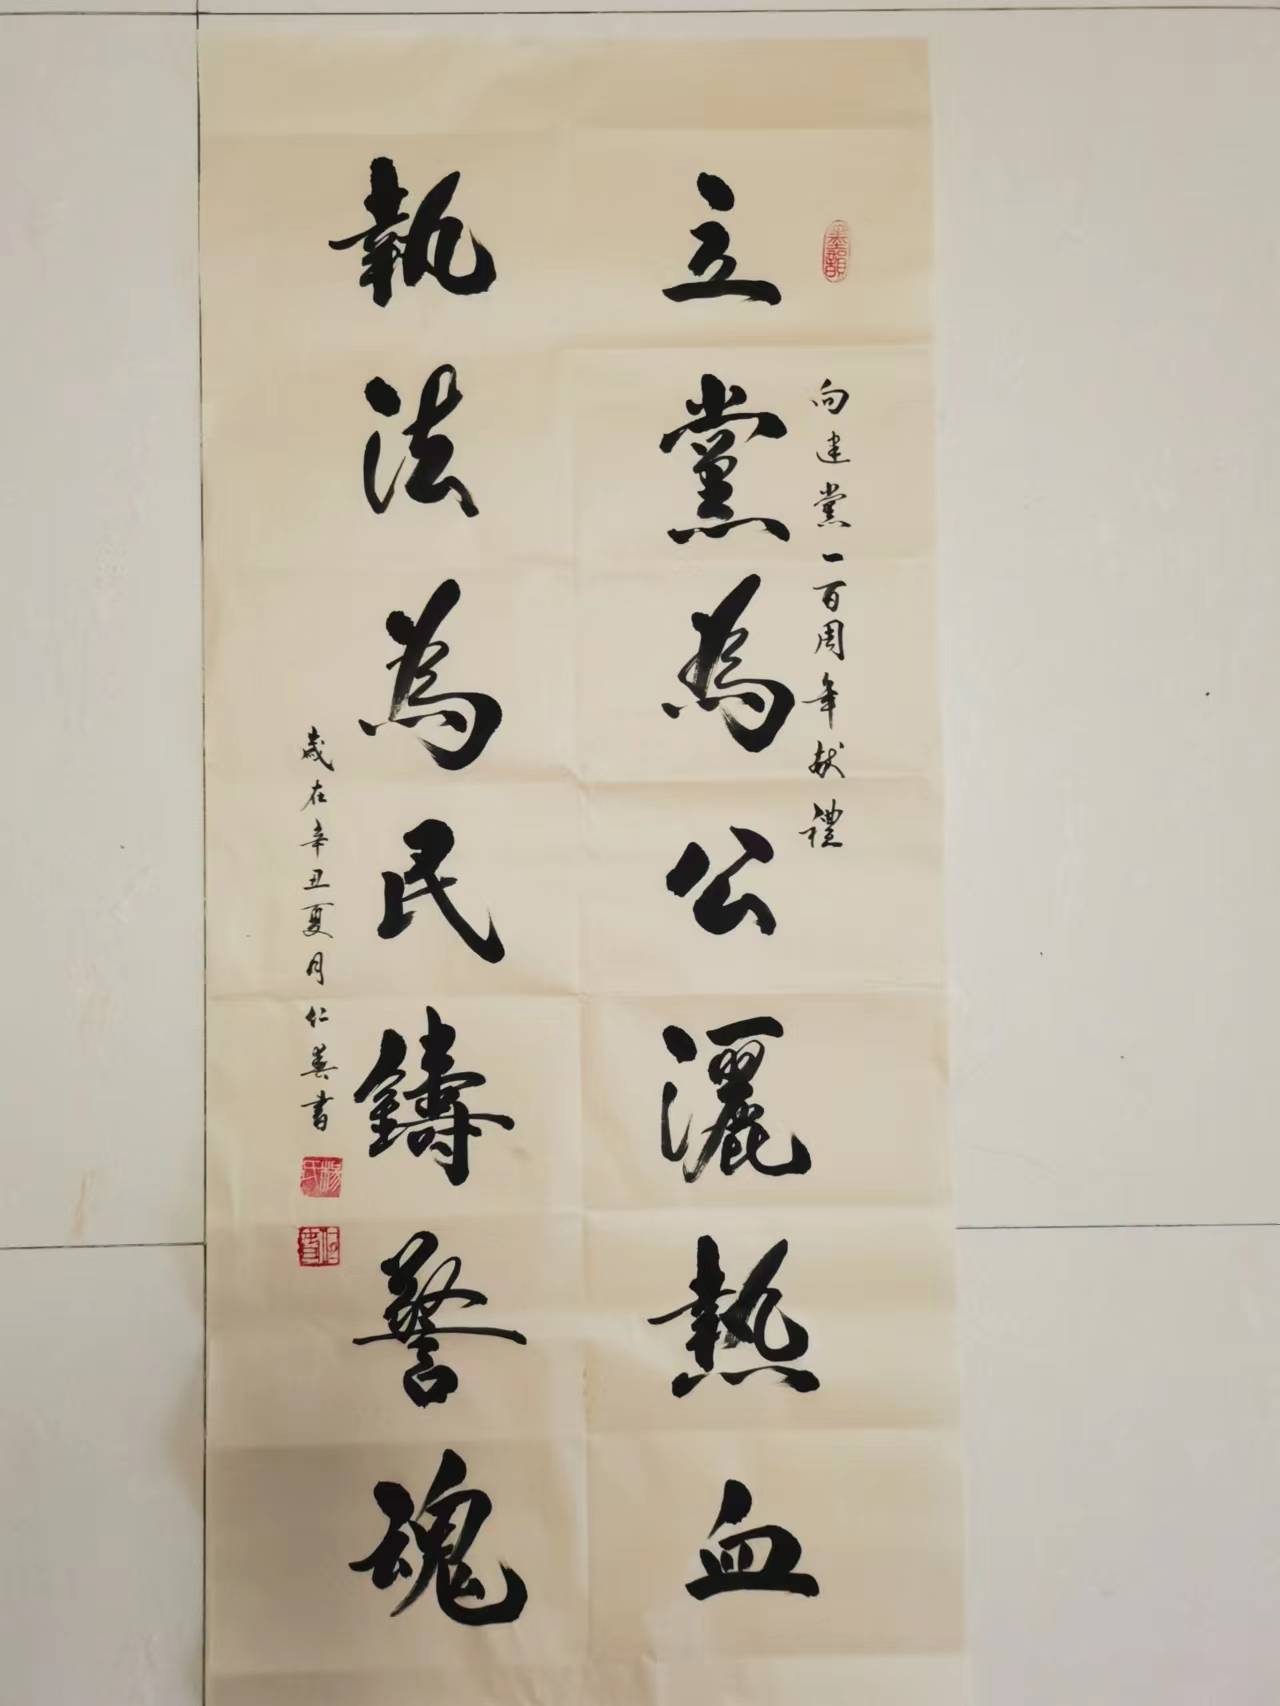 立黨為公灑熱血
向建党一百周年献禮
執法為民鑄警魂
歲在辛丑夏月仁義書
楊氏